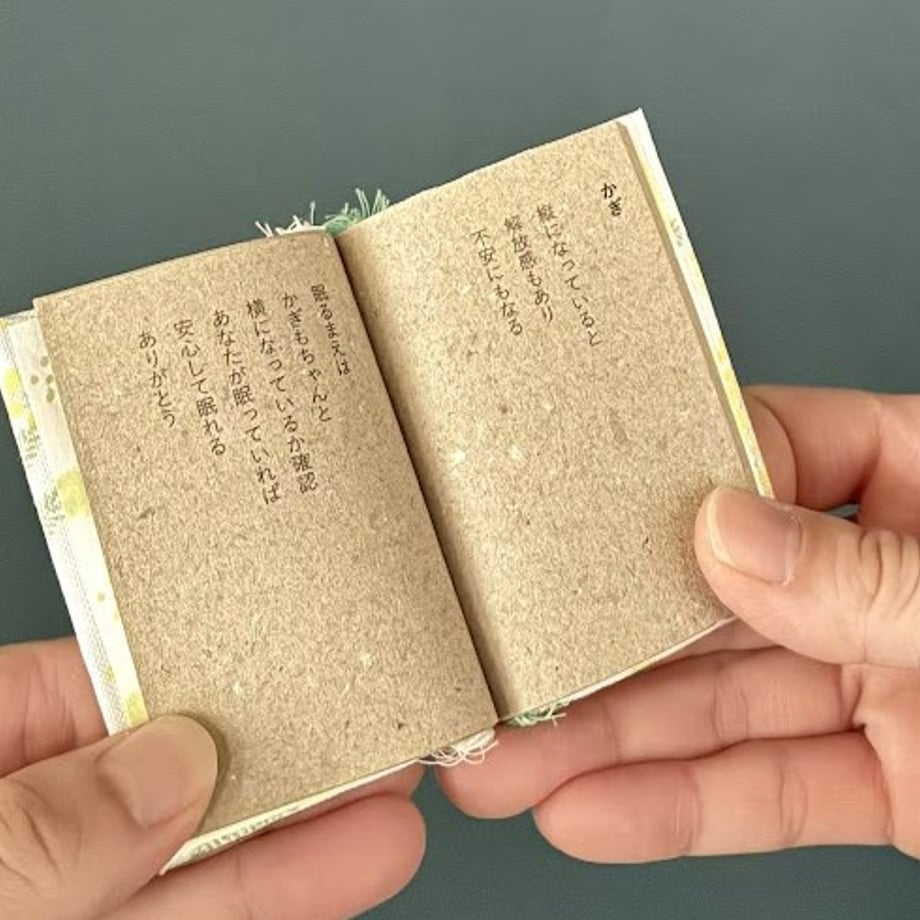 かぎ
縦になっていると
解放感もあり
不安にもなる
眠るまえは
かぎもちゃんと
横になっているか確認
あなたが眠っていれば
安心して眠れる
ありがとう